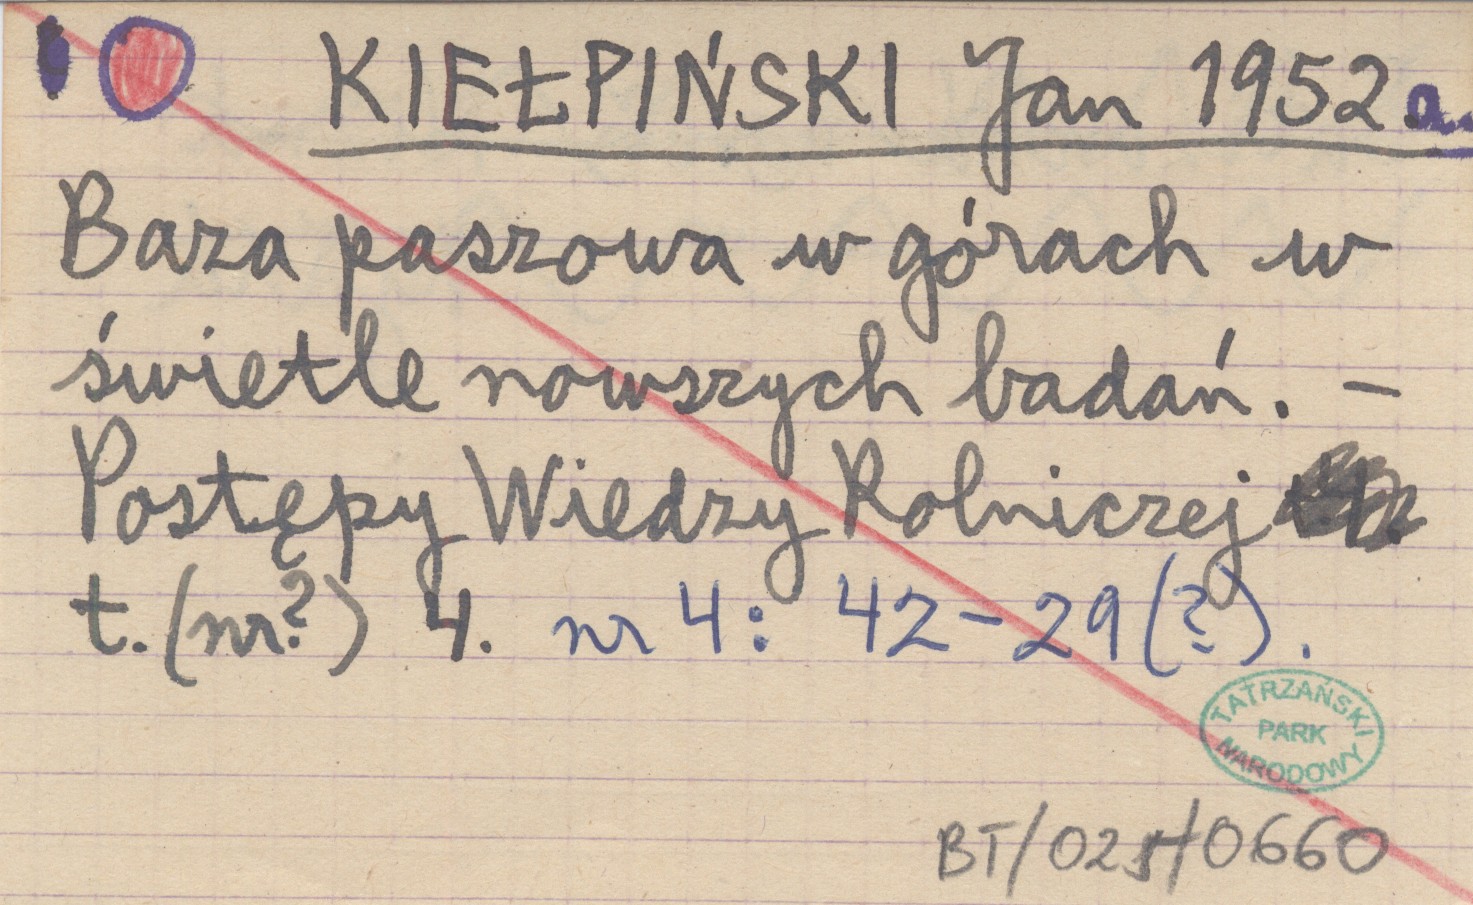 KIEŁPIŃSKI Jan 1952.a.
Baza paszowa w górach w
świetle nowszych badań. -
Postępy Wiedzy Rolniczej
t. (nr?) 4. nr 4: 42-29(?).
TATRZAŃSKI
PARK
NARODOWY
BT/025/0660